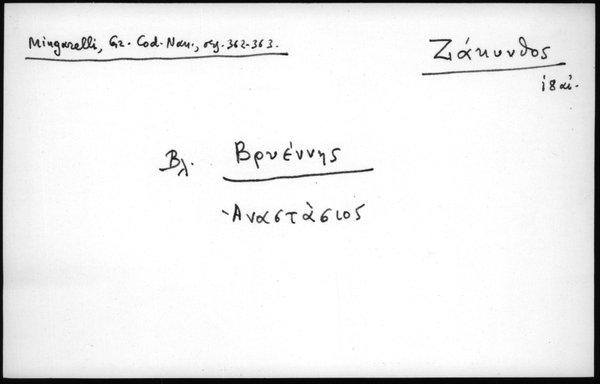 Mingarelli, Gr. Cod. Nan., σεσ. 362-363.
Ζάκυνθος
ιη αἰ.
Βλ. Βρυέννης
Ἀναστάσιος